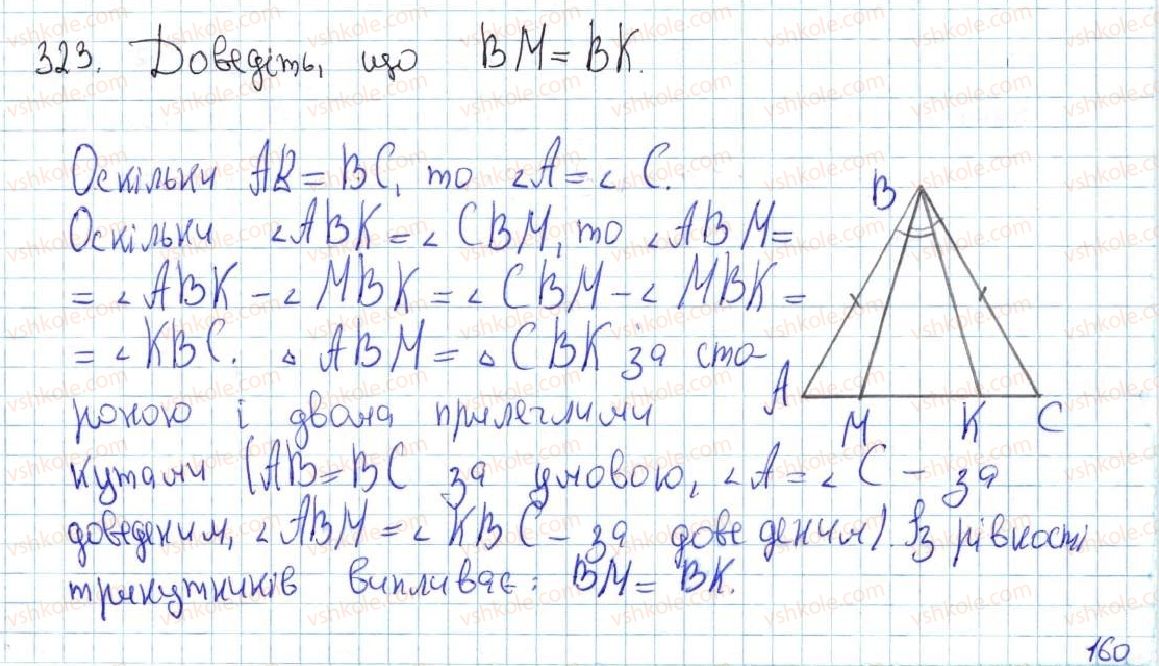 323. Доведіть, що BM = BK.
Оскільки AB = BC, то ∠A = ∠C.
Оскільки ∠ABK = ∠CBM, то ∠ABM =
= ∠ABK - ∠MBK = ∠CBM - ∠MBK =
= ∠KBC. △ABM = △CBK за сто-
роною і двома прилеглими
кутами (AB = BC за умовою, ∠A = ∠C - за
доведеним, ∠ABM = ∠KBC - за доведеним). Із рівності
трикутників випливає: BM = BK.
B
A M K C
160
vshkole.com